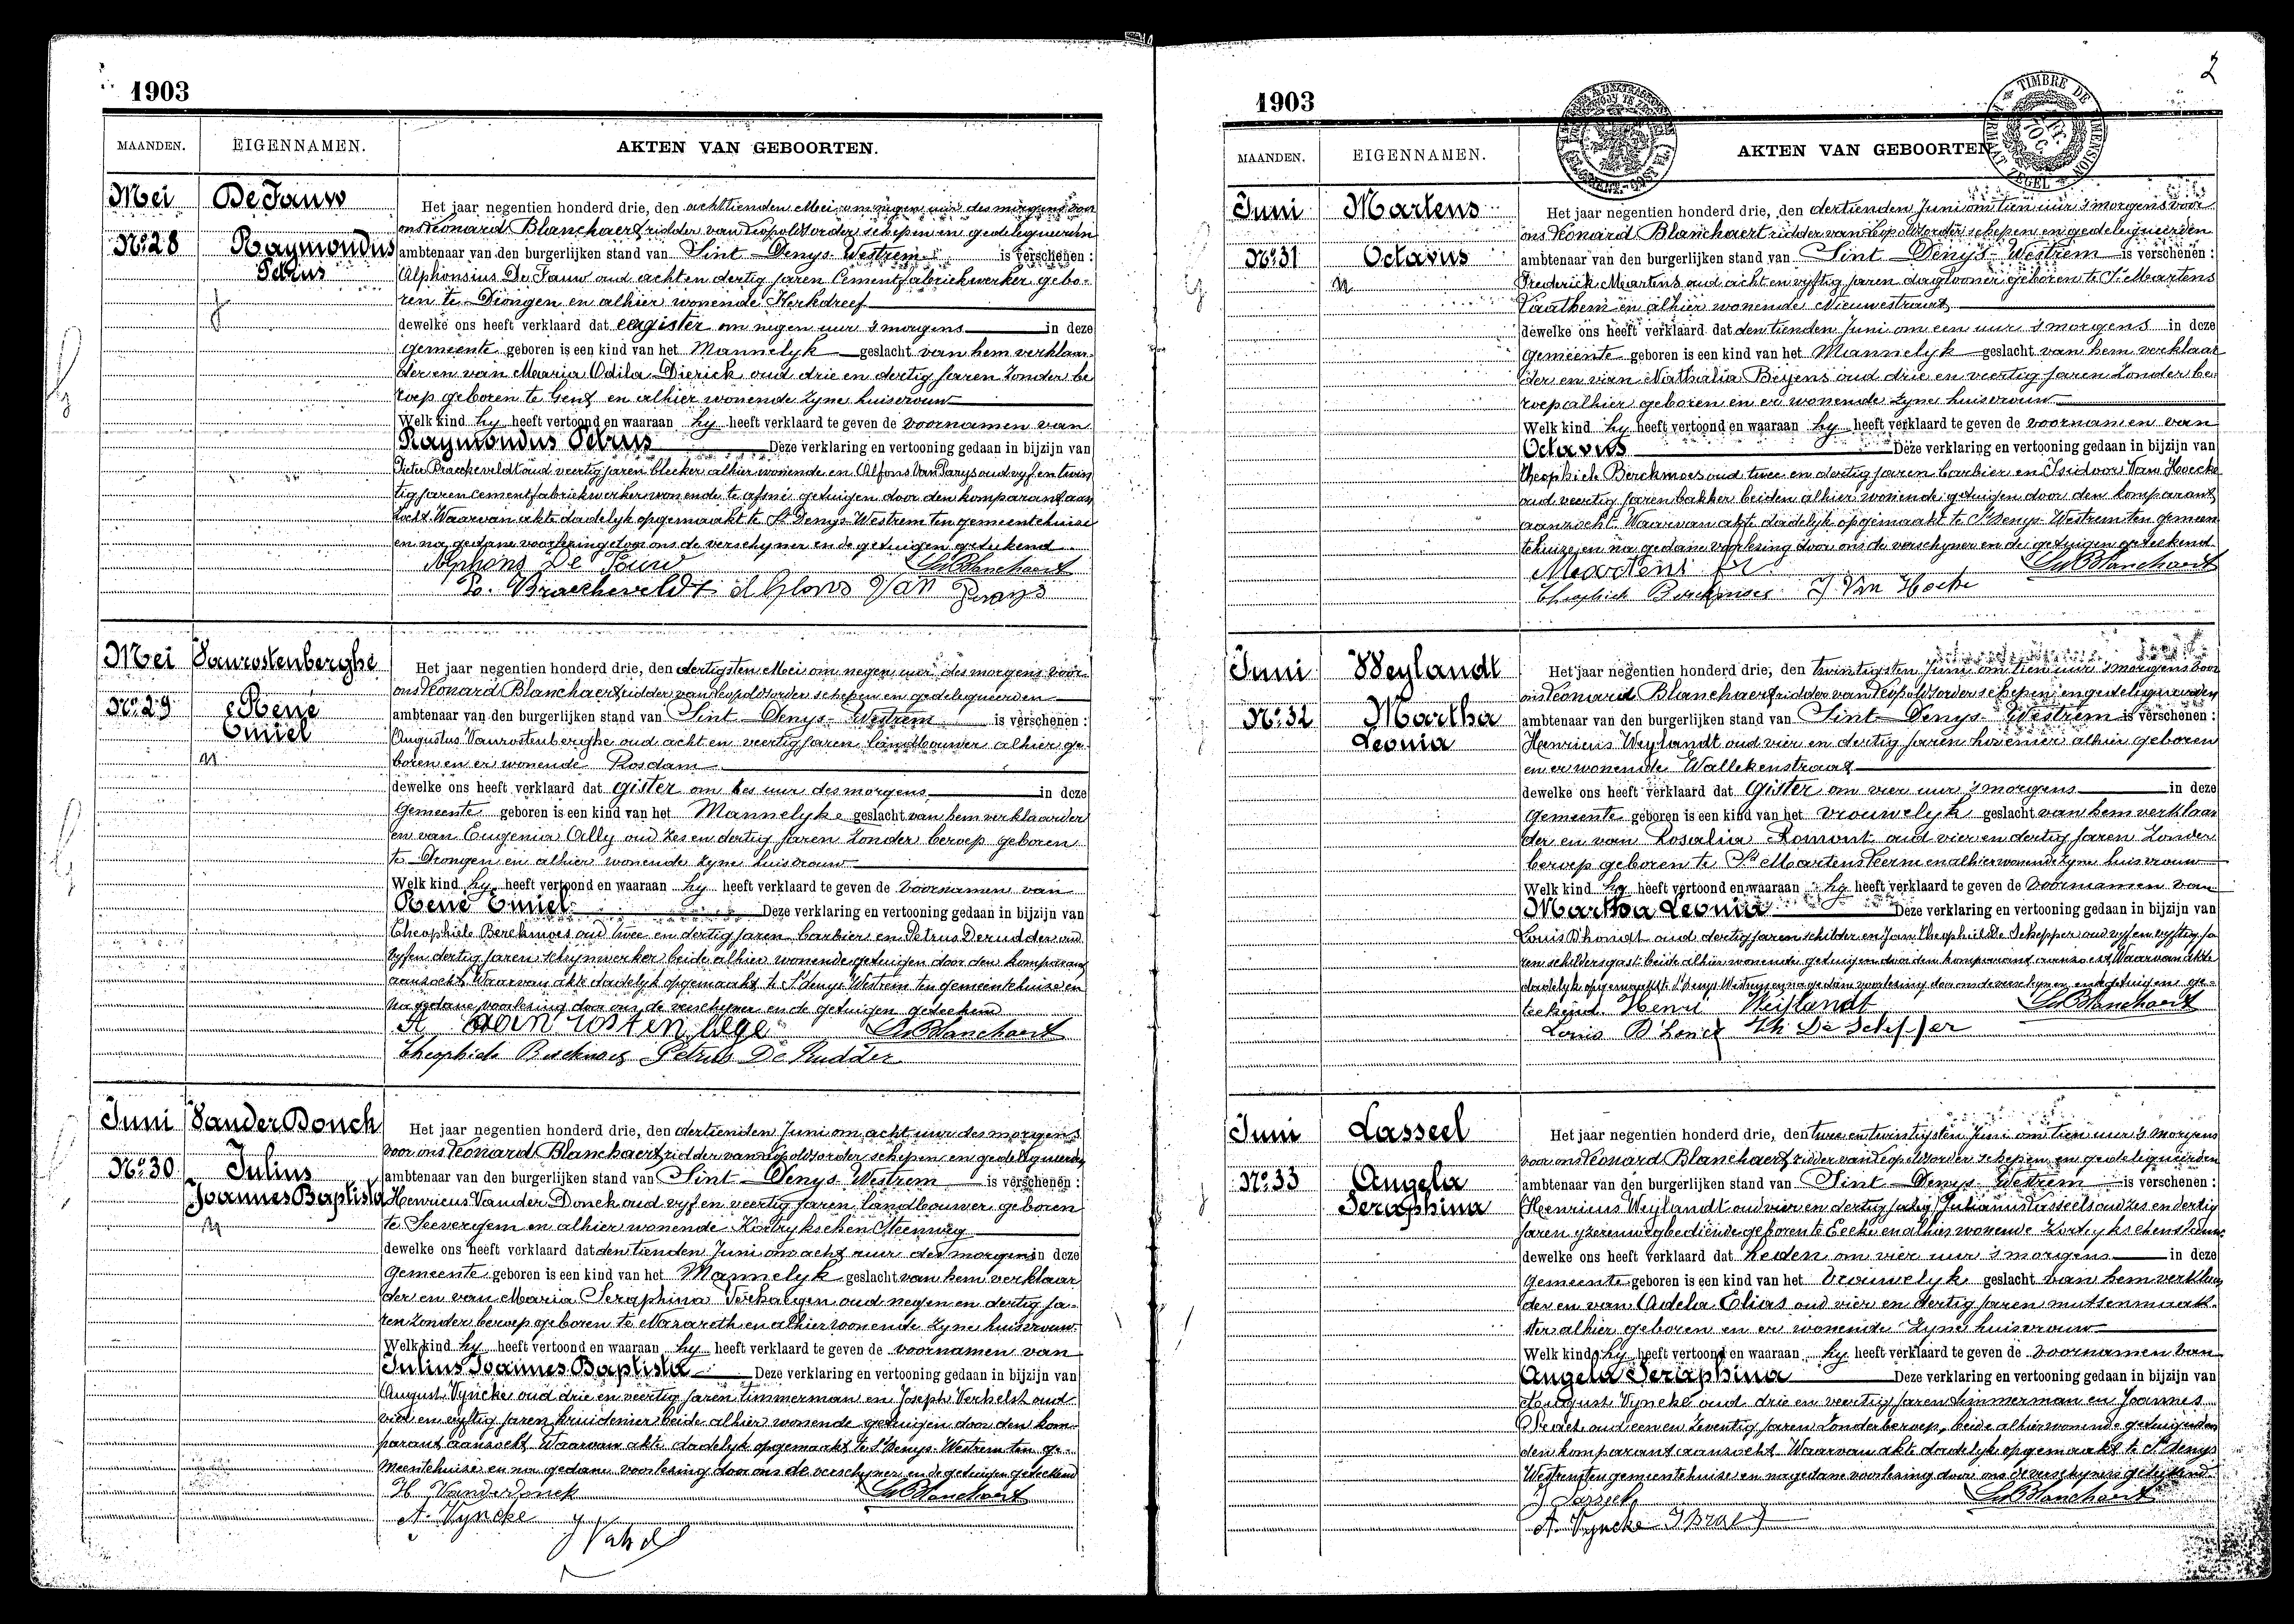 1903
MAANDEN. EIGENNAMEN. AKTEN VAN GEBOORTEN.
Mei De Fauw
Het jaar negentien honderd drie, den achttienden Mei om negen uur des morgens voor
ons Leonard Blanchaert ridder van Leopoldsorder schepen en gedelegueerden
No. 28 Raymondus
Petrus
ambtenaar van den burgerlijken stand van Sint Denys-Westrem is verschenen :
Alphonsius De Fauw oud acht en dertig jaren Cementfabriekwerker gebo-
ren te Drongen en alhier wonende Kerkdreef
dewelke ons heeft verklaard dat eergister om negen uur 's morgens in deze
gemeente geboren is een kind van het Mannelyk geslacht van hem verklaar-
der en van Maria Odila Dierick oud drie en dertig jaren zonder be
roep geboren te Gent en alhier wonende zyne huisvrouw
Welk kind hy heeft vertoond en waaraan hy heeft verklaard te geven de voornamen van
Raymondus Petrus Deze verklaring en vertooning gedaan in bijzijn van
Pieter Braeckeveldt oud veertig jaren bleeker alhier wonende en Alfons Van Parys oud vyf en twin
tig jaren cementfabriekwerker wonende te getuigen door den komparant aan
zocht Waarvan akte dadelyk opgemaakt te St Denys-Westrem ten gemeentehuize
en na gedane voorlezing door ons de verschyner en de getuigen geteekend
Alphons De Fauw LdBlanchaert
P. Braeckeveldt Alfons Van Parys
Mei Vanrostenberghe
Het jaar negentien honderd drie, den dertigsten Mei om negen uur des morgens voor
ons Leonard Blanchaert ridder van Leopoldsorder schepen en gedelegueerden
No. 29 René
Emiel
ambtenaar van den burgerlijken stand van Sint Denys-Westrem is verschenen :
Augustus Vanrostenberghe oud acht en veertig jaren landbouwer alhier ge-
boren en er wonende Rosdam
dewelke ons heeft verklaard dat gister om zes uur des morgens in deze
gemeente geboren is een kind van het Mannelyke geslacht van hem verklaarder
en van Eugenia Ally oud zes en dertig jaren zonder beroep geboren
te Drongen en alhier wonende zyne huisvrouw
Welk kind hy heeft vertoond en waaraan hy heeft verklaard te geven de voornamen van
René Emiel Deze verklaring en vertooning gedaan in bijzijn van
Theophiele Berckmoes oud twee en dertig jaren barbier en Petrus Derudder oud
vyf en dertig jaren schrijnwerker beide alhier wonende getuigen door den komparant
aanzocht Waarvan akte dadelyk opgemaakt te St denys-Westrem ten gemeentehuize en
na gedane voorlezing door ons de verschyner en de getuigen geteekend
A van rostenbege LdBlanchaert
Theophiele Berckmoes Petrus De Rudder
Juni Vander Donck
Het jaar negentien honderd drie, den dertienden Juni om acht uur des morgens
voor ons Leonard Blanchaert ridder van Leopoldsorder schepen en gedelegueerden
No. 30 Julius
Joannes Baptista
ambtenaar van den burgerlijken stand van Sint Denys-Westrem is verschenen :
Henricus Vander Donck oud vyf en veertig jaren landbouwer geboren
te Seevergem en alhier wonende Kortrykschen Steenweg
dewelke ons heeft verklaard dat den tienden Juni om acht uur des morgens in deze
gemeente geboren is een kind van het Mannelyk geslacht van hem verklaar
der en van Maria Seraphina Verhaegen oud negen en dertig ja-
ren zonder beroep geboren te Nazareth en alhier wonende zyne huisvrouw
Welk kind hy heeft vertoond en waaraan hy heeft verklaard te geven de voornamen van
Julius Joannes Baptista Deze verklaring en vertooning gedaan in bijzijn van
August Vyncke oud drie en veertig jaren timmerman en Joseph Verhelst oud
vier en vyftig jaren kruidenier beide alhier wonende getuigen door den kom-
parant aanzocht Waarvan akte dadelyk opgemaakt te St Denys-Westrem ten ge-
meentehuize en na gedane voorlezing door ons de verschyner en de getuigen geteekend
H Vanderdonck LdBlanchaert
A. Vyncke
2
1903
TIMBRE DE DIMENSION
FORMAAT ZEGEL
MAANDEN. EIGENNAMEN. AKTEN VAN GEBOORTEN
Juni Martens
Het jaar negentien honderd drie, den dertienden Juni om tien uur 's morgens voor
ons Leonard Blanchaert ridder van Leopoldsorder schepen en gedelegueerden
No. 31 Octavus
ambtenaar van den burgerlijken stand van Sint Denys-Westrem is verschenen :
Frederick Martens oud acht en vyftig jaren daglooner geboren te St Martens
Laathem en alhier wonende Nieuwestraat
dewelke ons heeft verklaard dat den tienden Juni om een uur 's morgens in deze
gemeente geboren is een kind van het Mannelyk geslacht van hem verklaar
der en van Nathalia Beyens oud drie en veertig jaren zonder be-
roep alhier geboren en er wonende zyne huisvrouw
Welk kind hy heeft vertoond en waaraan hy heeft verklaard te geven de voornamen van
Octavus Deze verklaring en vertooning gedaan in bijzijn van
Theophiele Berckmoes oud twee en dertig jaren barbier en Isidoor Van Hoecke
oud veertig jaren bakker beiden alhier wonende getuigen door den komparant
aanzocht. Waarvan akte dadelyk opgemaakt te St Denys-Westrem ten gemeen
tehuize en na gedane voorlezing door ons de verschyner en de getuigen geteekend
Martens fr LdBlanchaert
Theophiele Berckmoes J Van Hoeke
Juni Weylandt
Het jaar negentien honderd drie, den twintigsten Juni om tien uur 's morgens voor
ons Leonard Blanchaert ridder van Leopoldsorder schepen en gedelegueerden
No. 32 Martha
Leonia
ambtenaar van den burgerlijken stand van Sint Denys-Westrem is verschenen :
Henricus Weylandt oud vier en dertig jaren hovenier alhier geboren
en er wonende Wallekenstraat
dewelke ons heeft verklaard dat gister om vier uur 's morgens in deze
gemeente geboren is een kind van het vrouwelyk geslacht van hem verklaar
der en van Rosalia Romont oud vier en dertig jaren zonder
beroep geboren te St Martens Leerne en alhier wonende zyne huisvrouw
Welk kind hy heeft vertoond en waaraan hy heeft verklaard te geven de voornamen van
Martha Leonia Deze verklaring en vertooning gedaan in bijzijn van
Louis D'hondt oud dertig jaren schilder en Jan Theophiel De Schepper oud vyf en vyftig ja
ren schildersgast beide alhier wonende getuigen door den komparant aanzocht Waarvan akte
dadelyk opgemaakt te St Denys-Westrem en na gedane voorlezing door ons de verschyner en de getuigen ge-
teekend. Henri Weylandt LdBlanchaert
Louis D'hondt Th De Schepper
Juni Lasseel
Het jaar negentien honderd drie, den twee en twintigsten Juni om tien uur 's morgens
voor ons Leonard Blanchaert ridder van Leopoldsorder schepen en gedelegueerden
No. 33 Angela
Seraphina
ambtenaar van den burgerlijken stand van Sint Denys-Westrem is verschenen :
(Henricus Weylandt oud vier en dertig jarig) Julianus Lasseel oud zes en dertig
jaren yzerenwegbediende geboren te Eecke en alhier wonende Kortrykschensteenw.
dewelke ons heeft verklaard dat heden om vier uur 's morgens in deze
gemeente geboren is een kind van het vrouwelyk geslacht van hem verklaar
der en van Adela Elias oud vier en dertig jaren mutsenmaak-
ster alhier geboren en er wonende zyne huisvrouw
Welk kind hy heeft vertoond en waaraan hy heeft verklaard te geven de voornamen van
Angela Seraphina Deze verklaring en vertooning gedaan in bijzijn van
August Vyncke oud drie en veertig jaren timmerman en Joannes
oud een en zeventig jaren zonder beroep, beide alhier wonende getuigen door
den komparant aanzocht Waarvan akte dadelyk opgemaakt te St Denys
Westrem ten gemeentehuize en na gedane voorlezing door ons de verschyners geteekend.
J Lasseel LdBlanchaert
A. Vyncke